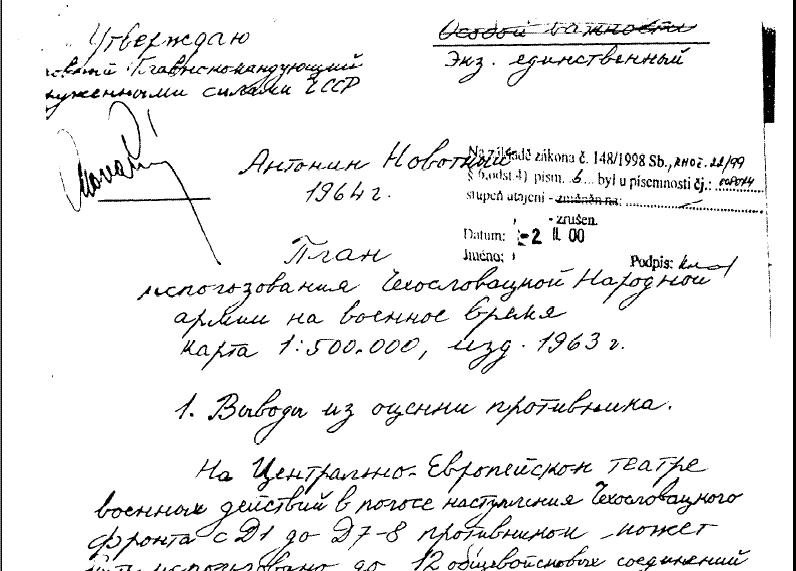 Утверждаю
Особой важности
Главнокомандующий
Экз. единственный
силами ЧССР
Антонин Новотный
1964 г.
Na základě zákona č. 148/1998 Sb.,
§ 6, odst. 4) písm. b byl u písemnosti čj.:
stupeň utajení - změněn na:
- zrušen.
Datum: -2 II. 00
Jméno:
Podpis:
План
использования Чехословацкой Народной
армии на военное время
карта 1:500.000, изд. 1963 г.
1. Выводы из оценки противника.
На Центрально-Европейском театре
военных действий в полосе наступления Чехословацкого
фронта с Д1 до Д7-8 противником может
быть использовано до 12 общевойсковых соединений